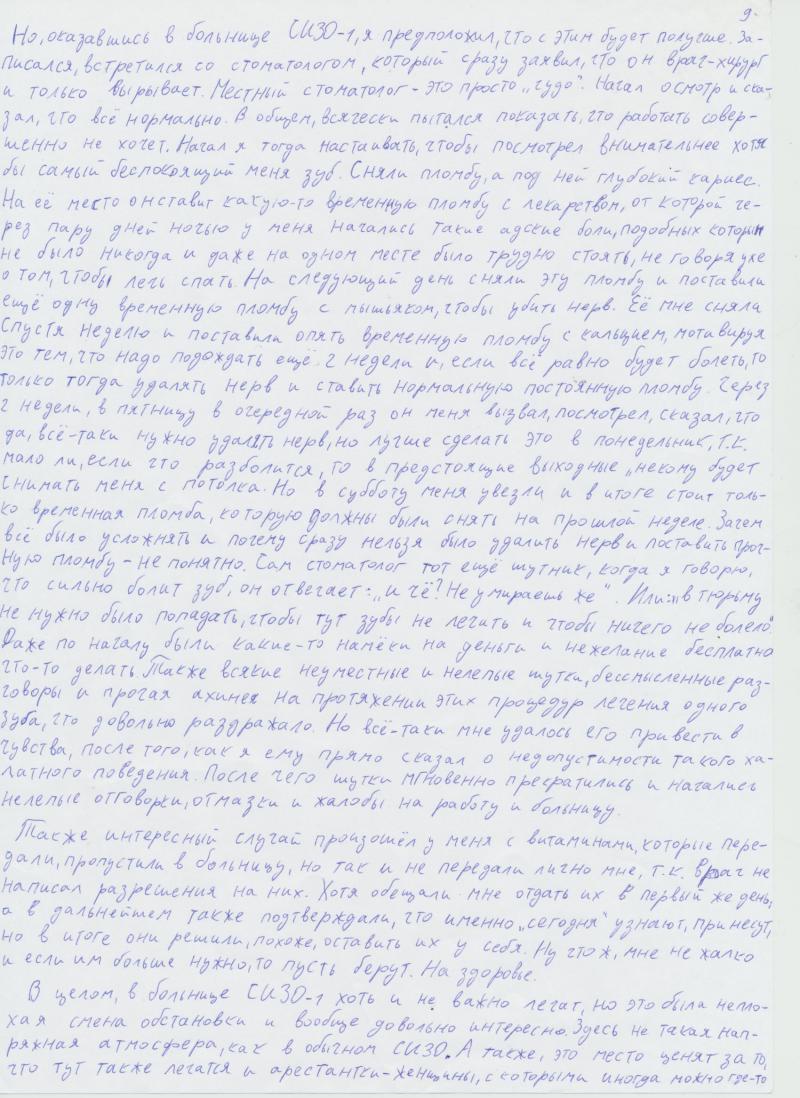 9.
Но, оказавшись в больнице СИЗО-1, я предположил, что с этим будет получше. За-
писался, встретился со стоматологом, который сразу заявил, что он врач-хирург
и только вырывает. Местный стоматолог - это просто „чудо". Начал осмотр и ска-
зал, что всё нормально. В общем, всячески пытался показать, что работать совер-
шенно не хочет. Начал я тогда настаивать, чтобы посмотрел внимательнее хотя
бы самый беспокоящий меня зуб. Сняли пломбу, а под ней глубокий кариес.
На её место он ставит какую-то временную пломбу с лекарством, от которой че-
рез пару дней ночью у меня начались такие адские боли, подобных которым
не было никогда и даже на одном месте было трудно стоять, не говоря уже
о том, чтобы лечь спать. На следующий день сняли эту пломбу и поставили
ещё одну временную пломбу с мышьяком, чтобы убить нерв. Её мне сняли
спустя неделю и поставили опять временную пломбу с кальцием, мотивируя
это тем, что надо подождать ещё 2 недели и, если всё равно будет болеть, то
только тогда удалять нерв и ставить нормальную постоянную пломбу. Через
2 недели, в пятницу в очередной раз он меня вызвал, посмотрел, сказал, что
да, всё-таки нужно удалять нерв, но лучше сделать это в понедельник, т.к.
мало ли, если что разболится, то в предстоящие выходные „некому будет
снимать меня с потолка. Но в субботу меня увезли и в итоге стоит толь-
ко временная пломба, которую должны были снять на прошлой неделе. Зачем
всё было усложнять и почему сразу нельзя было удалить нерв и поставить проч-
ную пломбу - не понятно. Сам стоматолог тот ещё шутник, когда я говорю,
что сильно болит зуб, он отвечает: „и чё? Не умираешь же". Или: „в тюрьму
не нужно было попадать, чтобы тут зубы не лечить и чтобы ничего не болело".
Даже по началу были какие-то намёки на деньги и нежелание бесплатно
что-то делать. Также всякие неуместные и нелепые шутки, бессмысленные раз-
говоры и прочая ахинея на протяжении этих процедур лечения одного
зуба, что довольно раздражало. Но всё-таки мне удалось его привести в
чувства, после того, как я ему прямо сказал о недопустимости такого ха-
латного поведения. После чего шутки мгновенно прекратились и начались
нелепые отговорки, отмазки и жалобы на работу и больницу.
Также интересный случай произошёл у меня с витаминами, которые пере-
дали, пропустили в больницу, но так и не передали лично мне, т.к. врач не
написал разрешения на них. Хотя обещали мне отдать их в первый же день,
а в дальнейшем также подтверждали, что именно „сегодня" узнают, принесут,
но в итоге они решили, похоже, оставить их у себя. Ну что ж, мне не жалко
и если им больше нужно, то пусть берут. На здоровье.
В целом, в больнице СИЗО-1 хоть и не важно лечат, но это была непло-
хая смена обстановки и вообще довольно интересно. Здесь не такая нап-
ряжная атмосфера, как в обычном СИЗО. А также, это место ценят за то,
что тут также лечатся и арестантки-женщины, с которыми иногда можно где-то